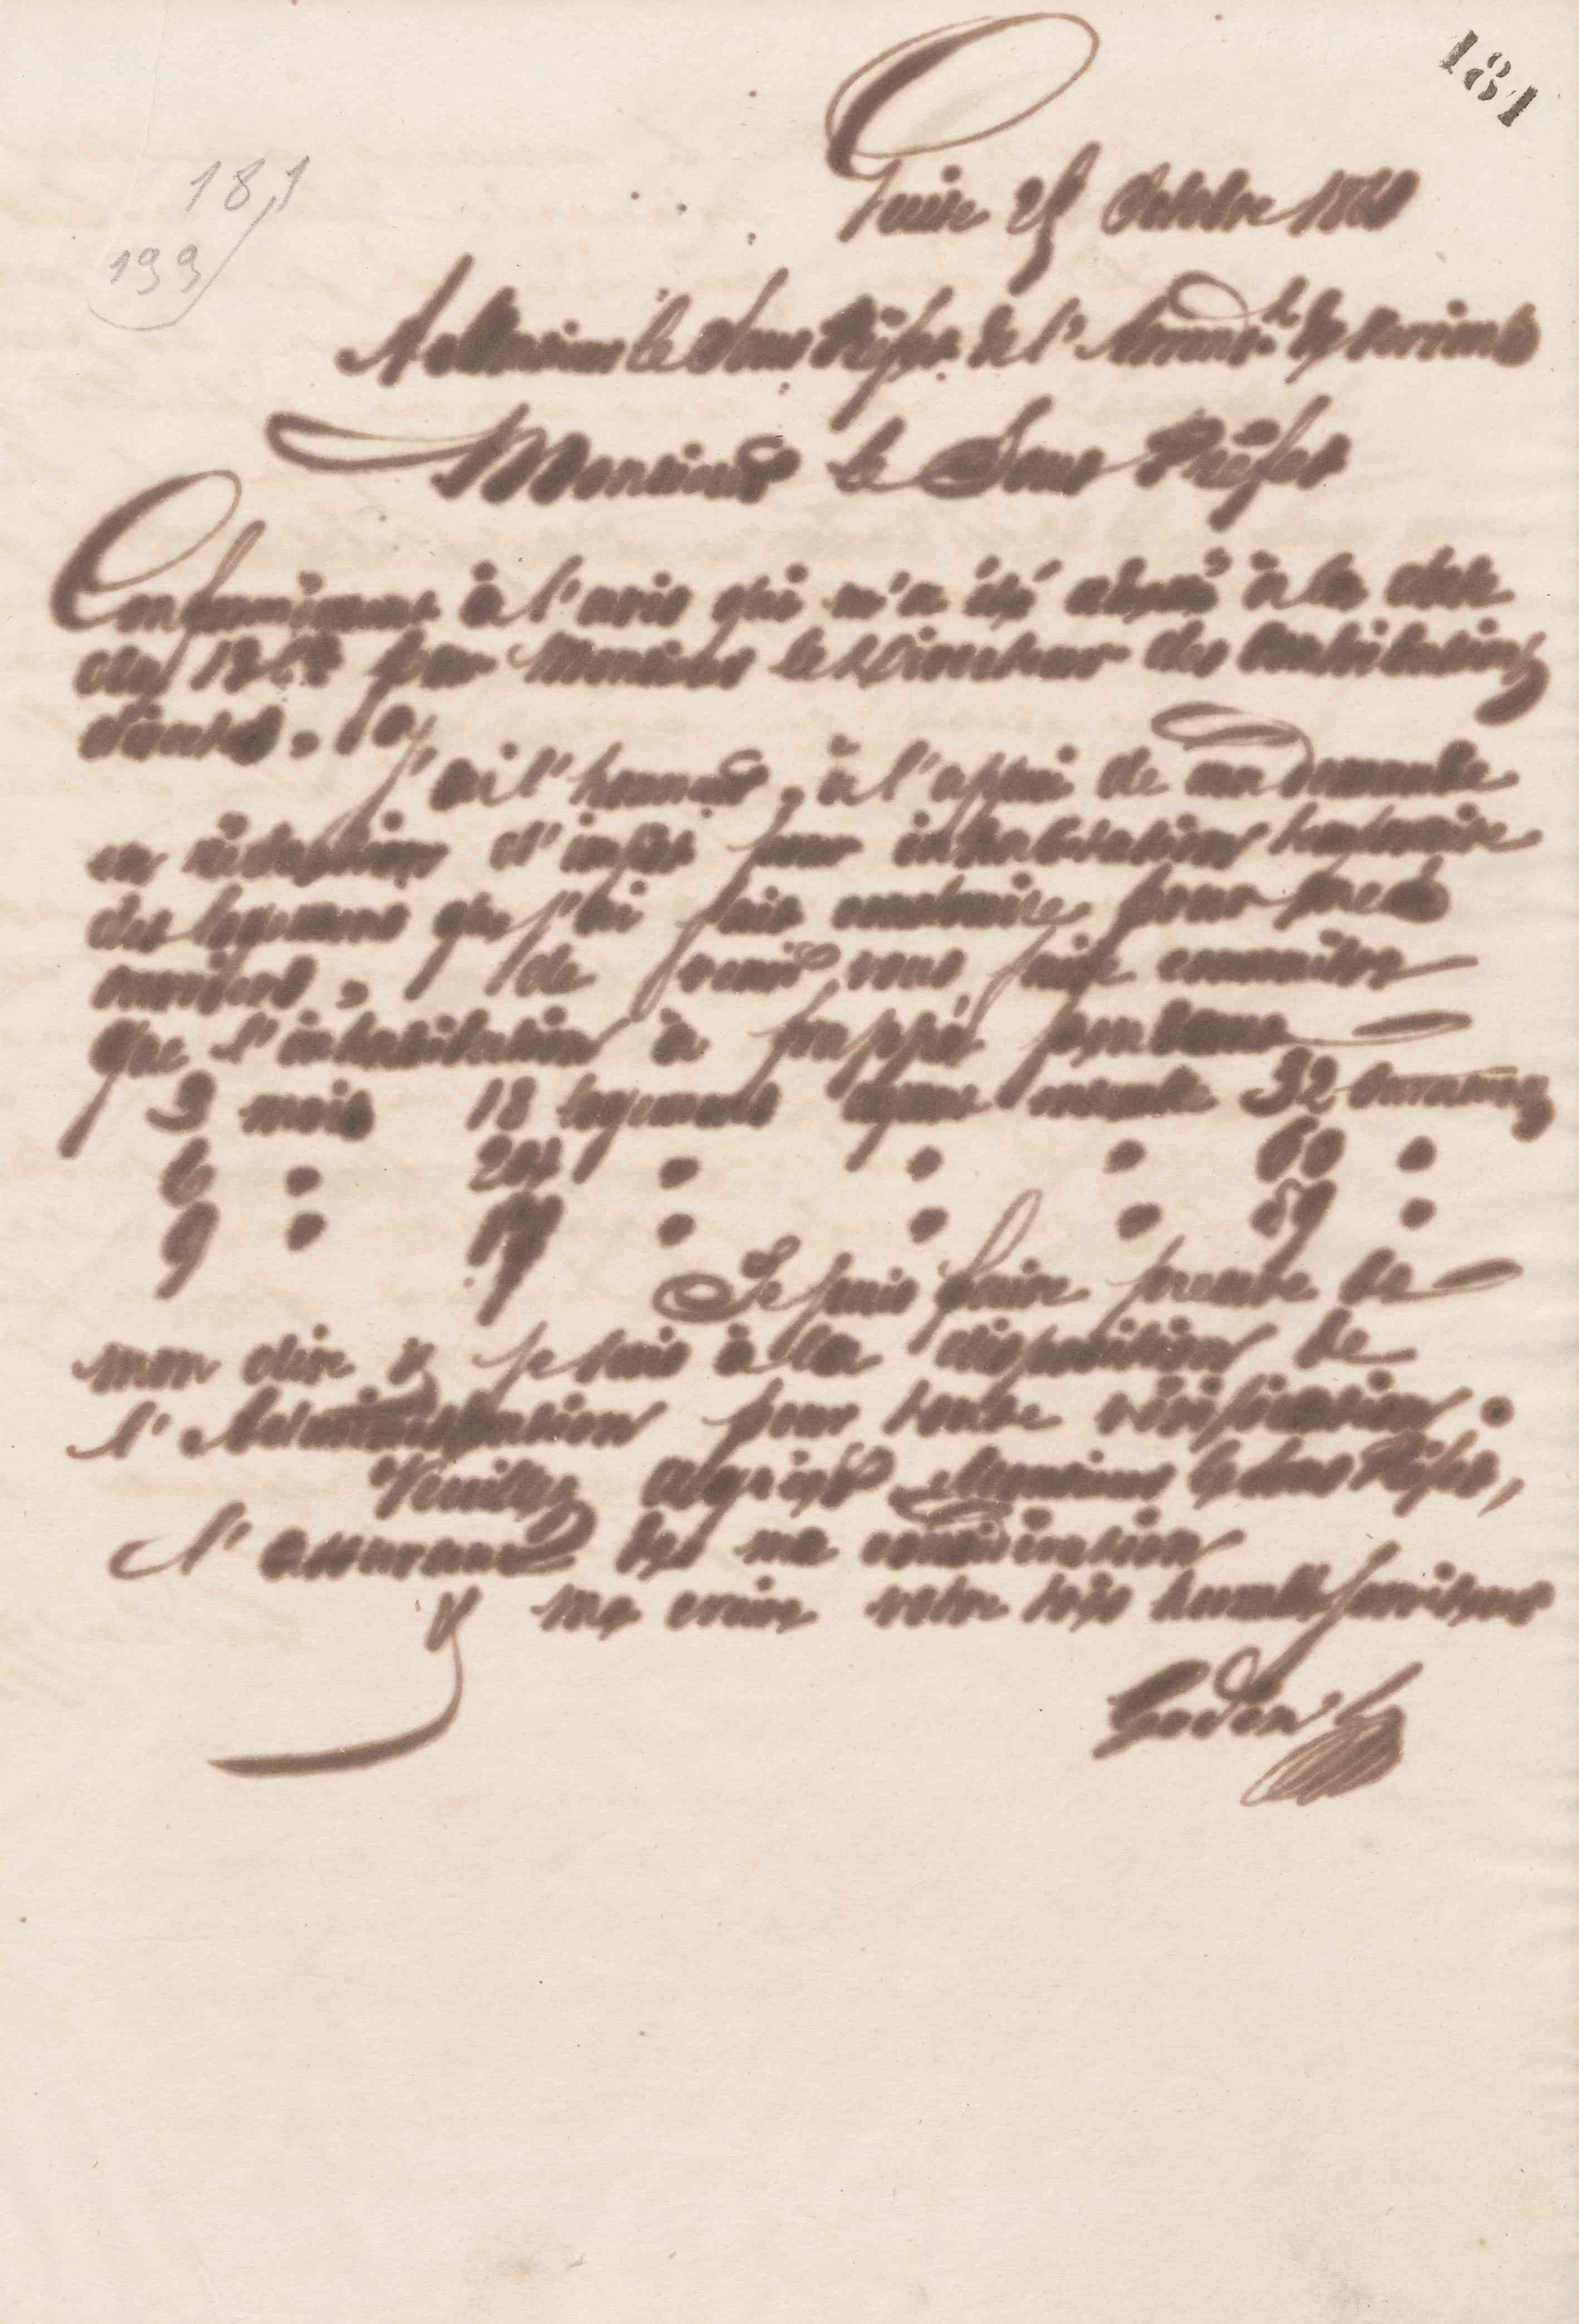 181
181
199
Guise 25 Octobre 1860
A Monsieur le Sous Préfet de l'Arrondt de Vervins
Monsieur le Sous Préfet
Conformément à l'avis qui m'a été adressé à la date
du par Monsieur le Directeur des Contributions
directes,
J'ai l'honneur, à l'appui de ma demande
en réduction d'impôt pour inhabitation temporaire
des logements que j'ai fait construire pour mes
ouvriers, de venir vous faire connaître
que l'inhabitation a frappé pendant
3 mois 18 logements ayant ensemble 32 ouvertures
6 " " " " 60 "
9 " " " " "
Je puis faire preuve de
mon dire & je suis à la disposition de
l'Administration pour toute vérification.
Veuillez agréer Monsieur le Sous Préfet,
l'assurance de ma considération
& me croire votre très humble serviteur
Godin